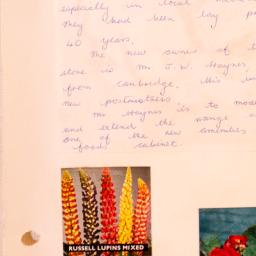 especially in local
they had been
40 years.
The new owner of
store is Mr J. W. Haynes
from Cambridge. His
new postmistress
Mr Haynes is to
and extend the range
one of the new amenities
foods cabinet.
RUSSELL LUPINS MIXED